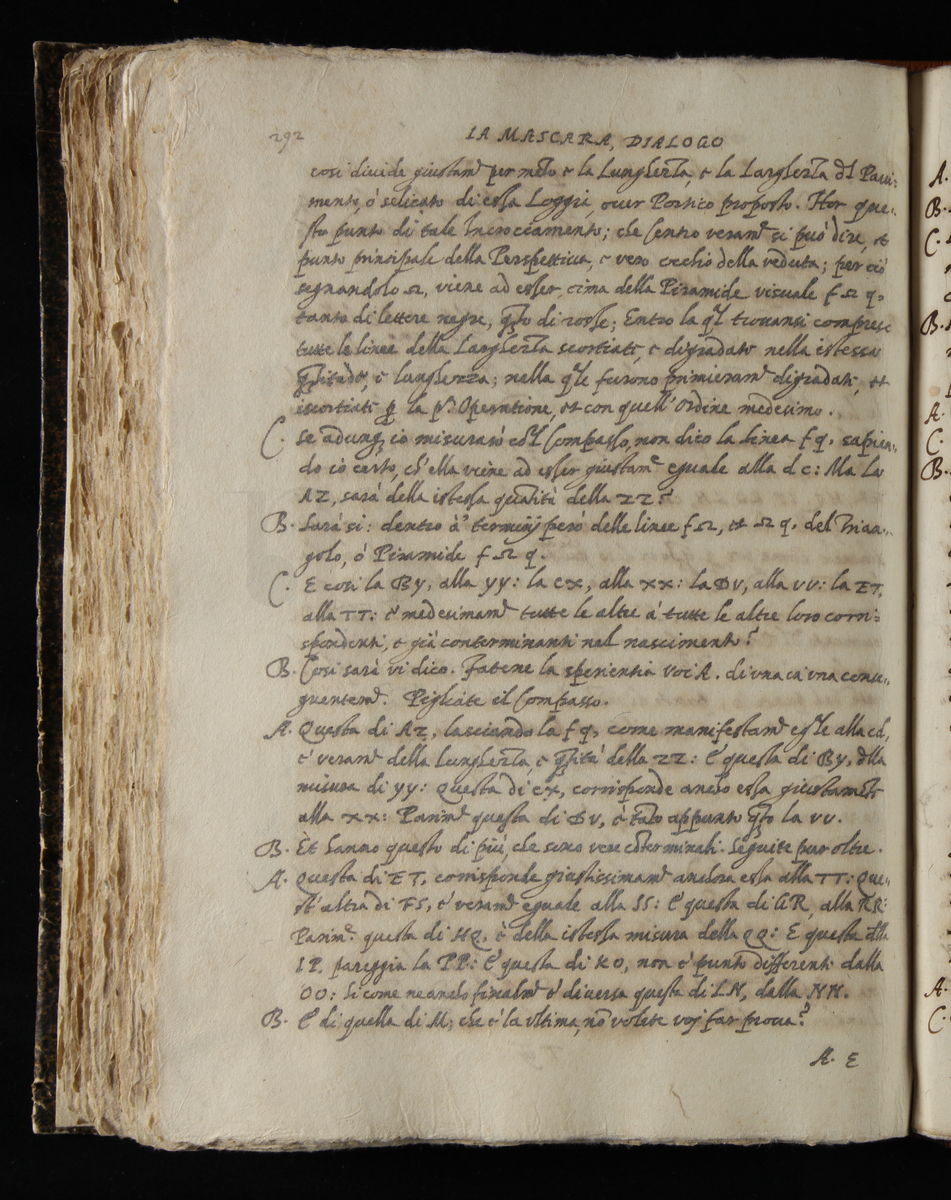 292
LA MASCARA, DIALOGO
cosi divide giustam.e per meto e la Lunghezza, e la Larghezza dl Paui-
mento, ò selicato di essa Loggia, ouer Portico proposto. Hor que-
sto punto di tale Incrocciamento; che Centro veram.e si può dire, et
punto principale della Perspettiua, e vero occhio della veduta; per ciò
segnandolo Ω, viene ad esser cima della Piramide visuale f Ω q,
tanto di lettere negre, qto di rosse; Entro la ql trouansi comprese
tutte le linee della Larghezza scortiate, e digradate nella istessa
e lunghezza; nella qle furono primieram.e digradate, et
iscortiate p la p.a Operatione, et con quell'ordine medesimo.
C. Se adunq; io misurarò col Compasso, non dico la linea f q, sapien-
do io certo, ch'ella viene ad esser giustam.e eguale alla d c: Ma la
AZ, sarà della istessa quàtità della ZZ?
B. Sarà si: dentro à' termini però delle linee f Ω, et Ω q, del Trian-
golo, ò Piramide f Ω q.
C. E cosi la By, alla yy: la CX, alla XX: la DV, alla VV: la ET,
alla TT: e' medesimam.e tutte le altre à tutte le altre loro corri-
spondenti, e già conterminanti nel nascimento?
B. Cosi sarà vi dico. Fatene la sperientia voi A. di vna in vna conse-
guentem.e Pigliate il Compasso.
A. Questa di AZ, lasciando la f q, come manifestam.e eqle alla cd,
e' veram.e della lunghezza, e della ZZ: E' questa di By, dlla
misura di yy: Questa di CX, corrisponde anch'o essa giustamte
alla XX: Parim.e questa di DV, è tàto appunto qto la VV.
B. Et hanno questo di più, che sono vere cõterminali. Seguite pur oltre.
A. Questa di ET, corrisponde giustissimam.e anchora essa alla TT: Que-
st'altra di FS, e' veram.e eguale alla SS: E' questa di GR, alla RR:
Parim.e questa di HQ, è della istessa misura della QQ: E questa dlla
IP, pareggia la PP: E' questa di KO, non e' punto differente dalla
OO: Si come ne anch'o finalm.e e' diuersa questa di LN, dalla NN.
B. E' di quella di M, che e' la vltima, nõ volete voj far proua?
A. E